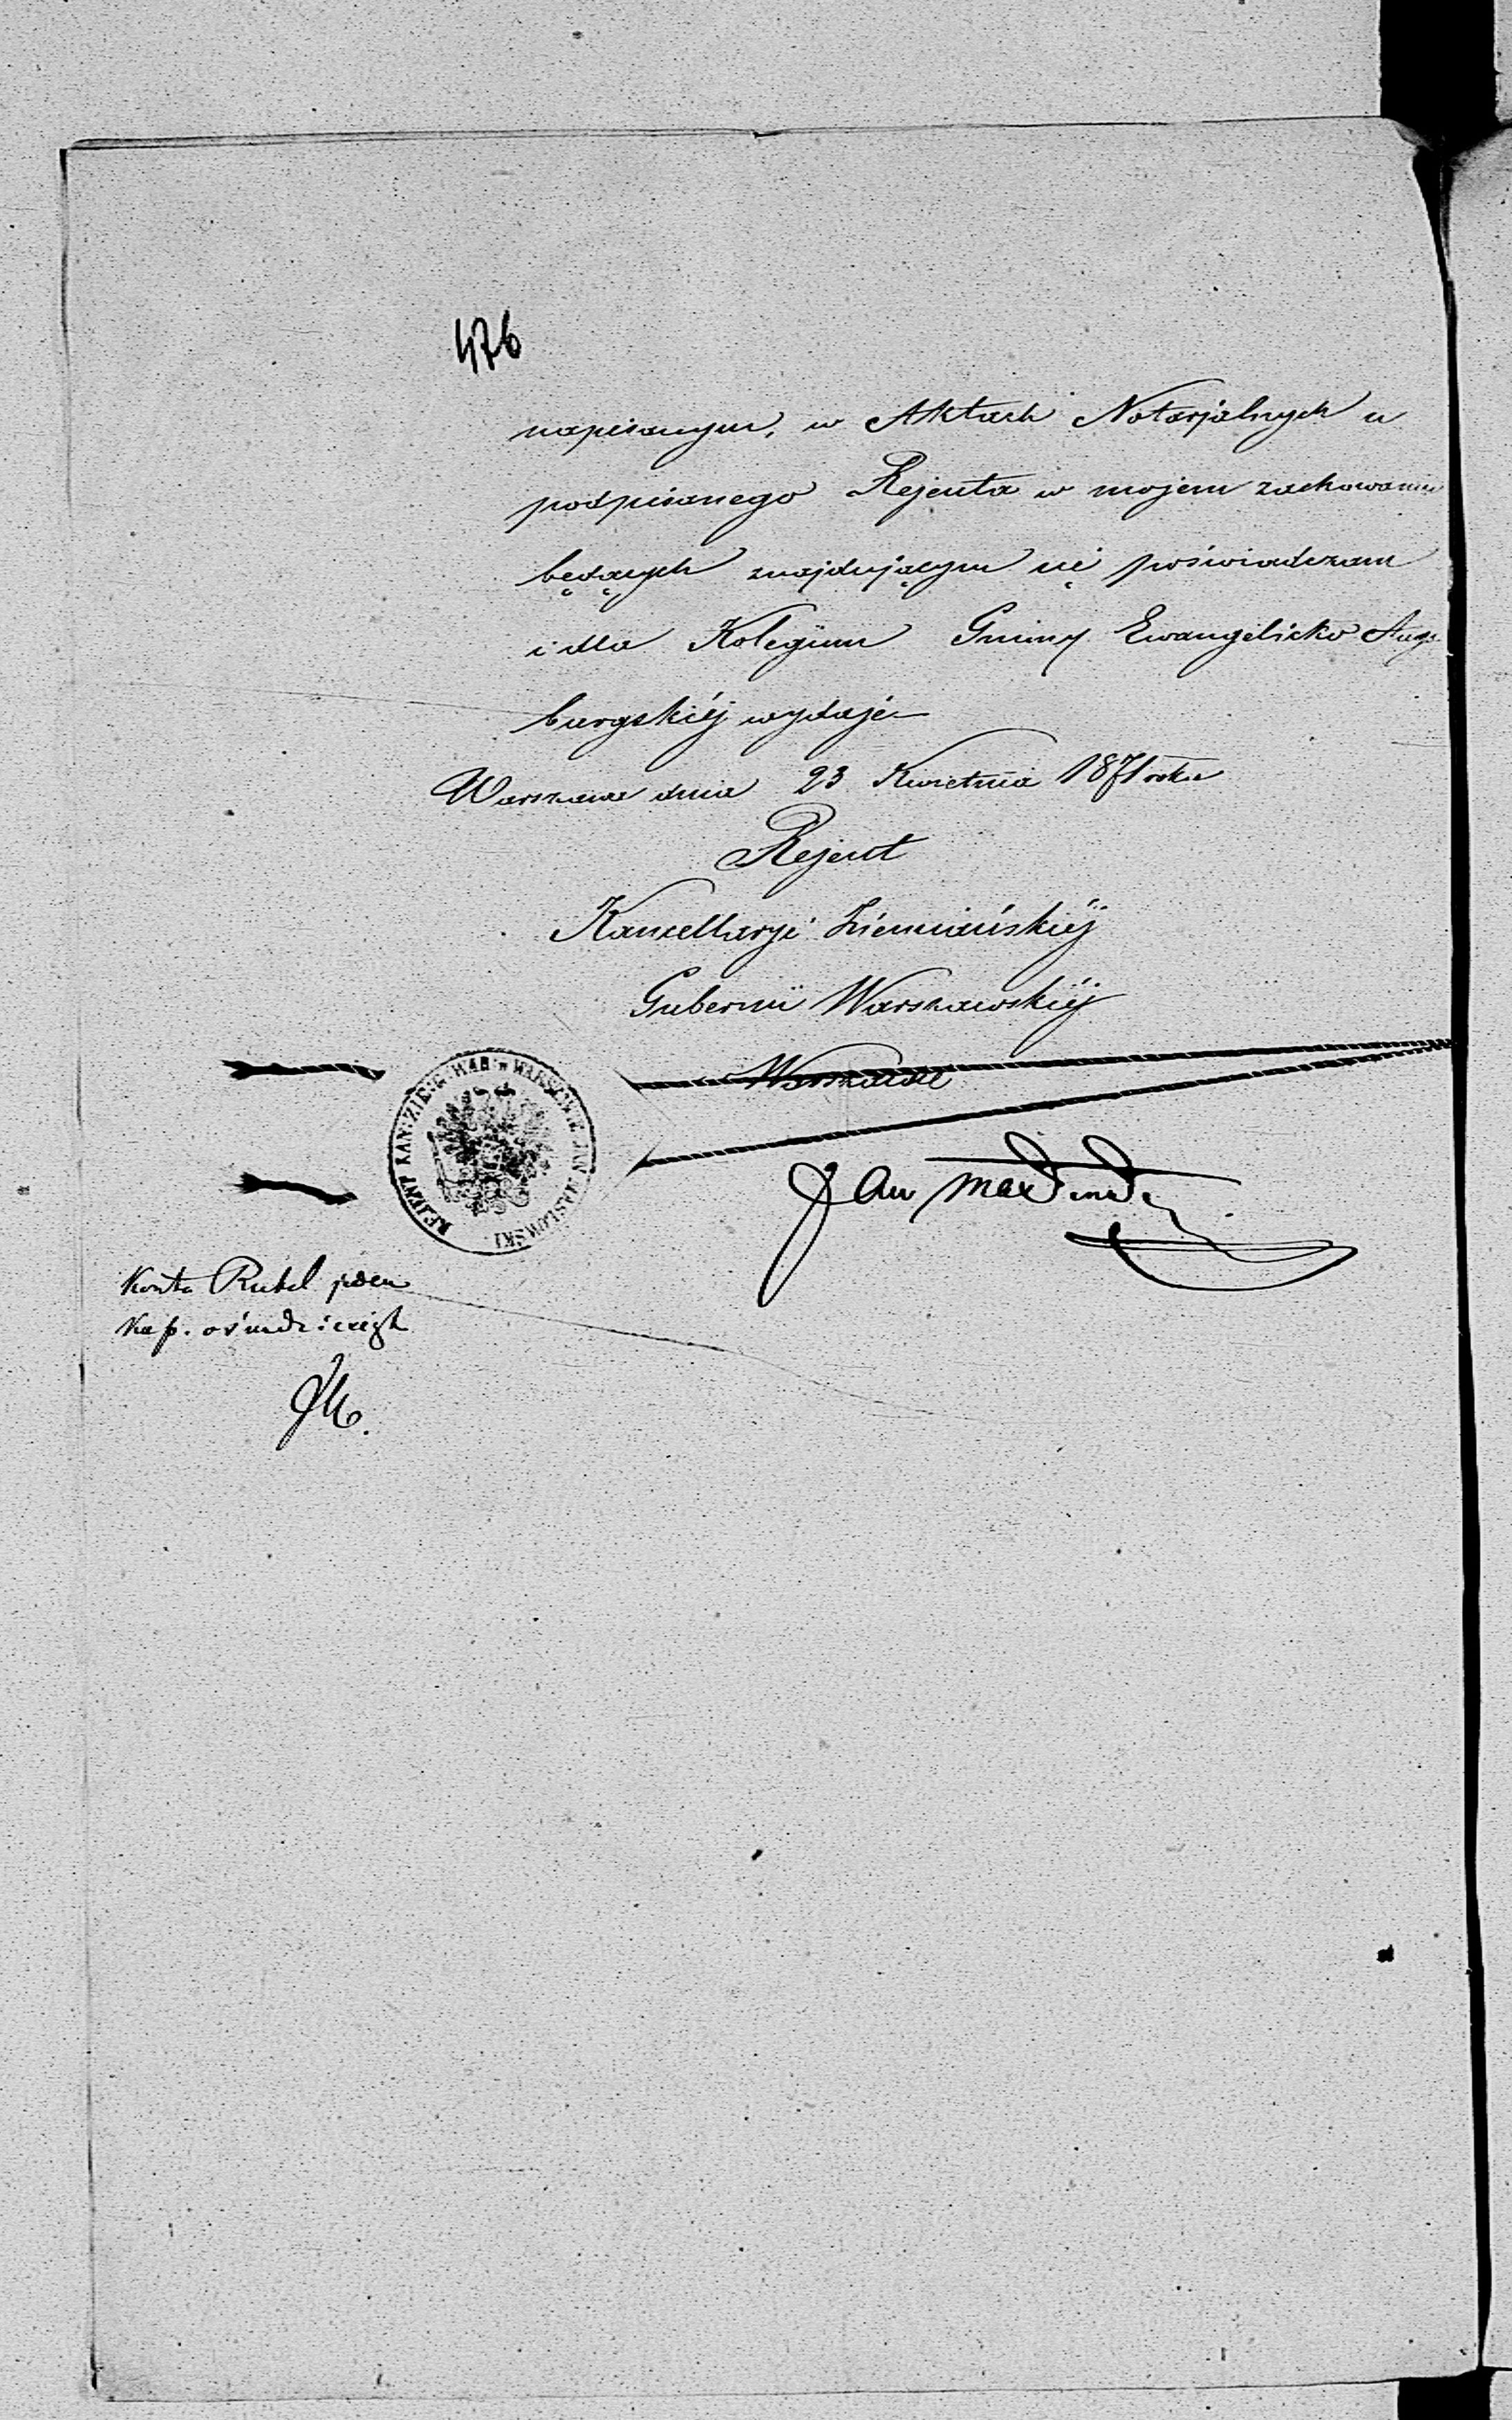 476
napisanym, w Aktach Notarjalnych u
podpisanego Rejenta w mojem zachowaniu
będących znajdującym się poświadczam
i dla Kolegium Gminy Ewangelicko Augs
burgskiéj wydaję
Warszawa dnia 23 Kwietnia 1871 roku
Rejent
Kancellaryi Ziemiańskiéj
Gubernii Warszawskiéj
w Warszawie
REJENT KAN: ZIE: G: WAR: w WARSZAWIE JAN MASŁOWSKI
Jan Masłowski
Kosztu Rubel jeden
Kop. ośmdziesiąt
JM.